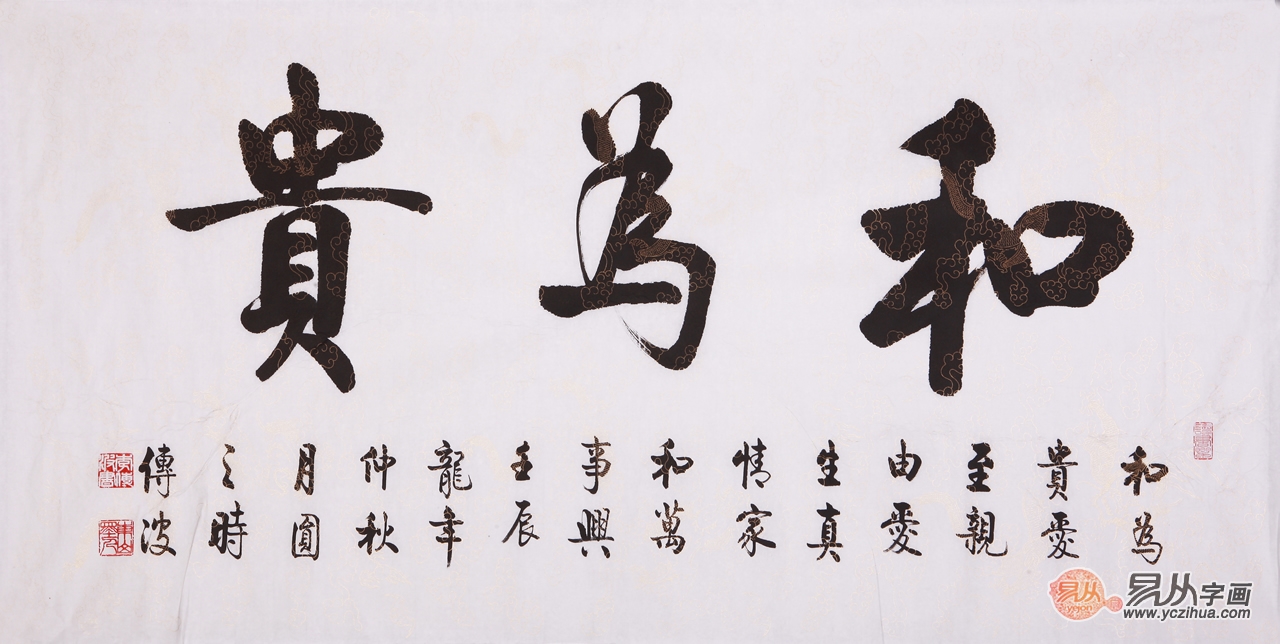 和為貴
和為
貴愛
至親
由愛
生真
情家
和萬
事興
壬辰
龍年
仲秋
月圓
之時
傳波
易从
ycjon
易从字画
www.yczihua.com